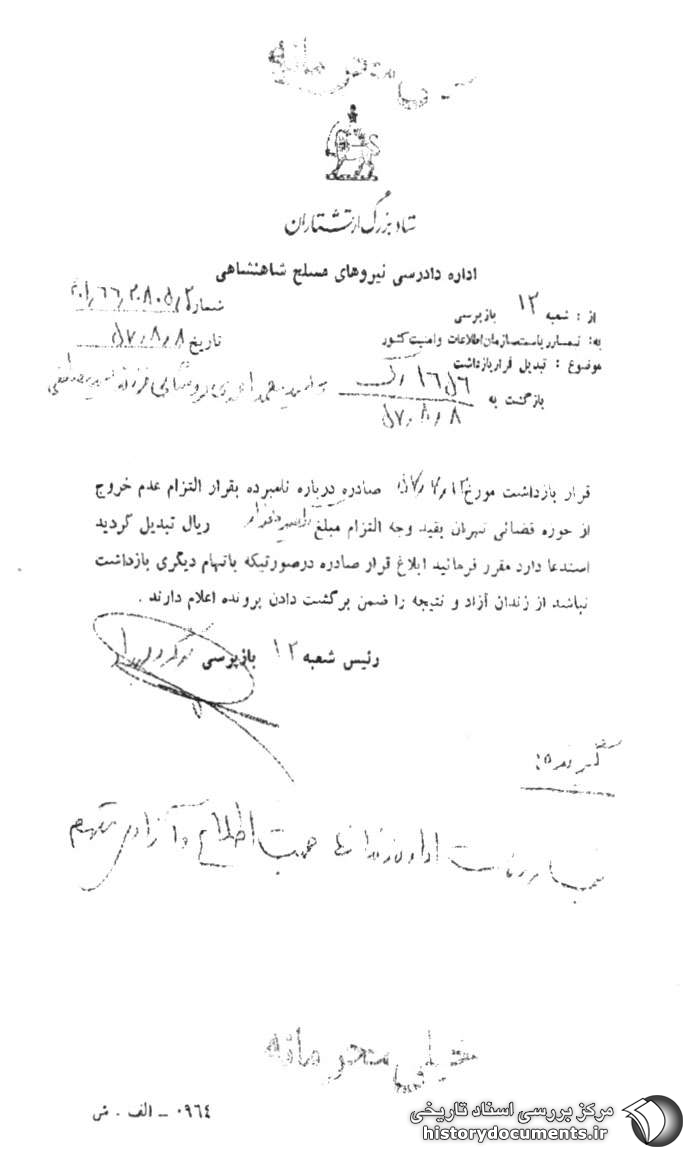 خیلی محرمانه
ستاد بزرگ ارتشتاران
اداره دادرسی نیروهای مسلح شاهنشاهی
از : شعبه ۱۲ بازپرسی
شماره
به: تیمسار ریاست سازمان اطلاعات و امنیت کشور
تاریخ ۵۷٫۸٫۸
موضوع : تبدیل قرار بازداشت
بازگشت به
۵۷٫۸٫۸
قرار بازداشت مورخ صادره درباره نامبرده بقرار التزام عدم خروج
از حوزه قضائی تهران بقید وجه التزام مبلغ ریال تبدیل گردید
استدعا دارد مقرر فرمائید ابلاغ قرار صادره درصورتیکه باتهام دیگری بازداشت
نباشد از زندان آزاد و نتیجه را ضمن برگشت دادن پرونده اعلام دارند .
رئیس شعبه ۱۲ بازپرسی
گیرنده:
ریاست اداره زندانها جهت اطلاع و آزادی متهم
خیلی محرمانه
۰۹۶۴ - الف . ش
مرکز بررسی اسناد تاریخی
historydocuments.ir